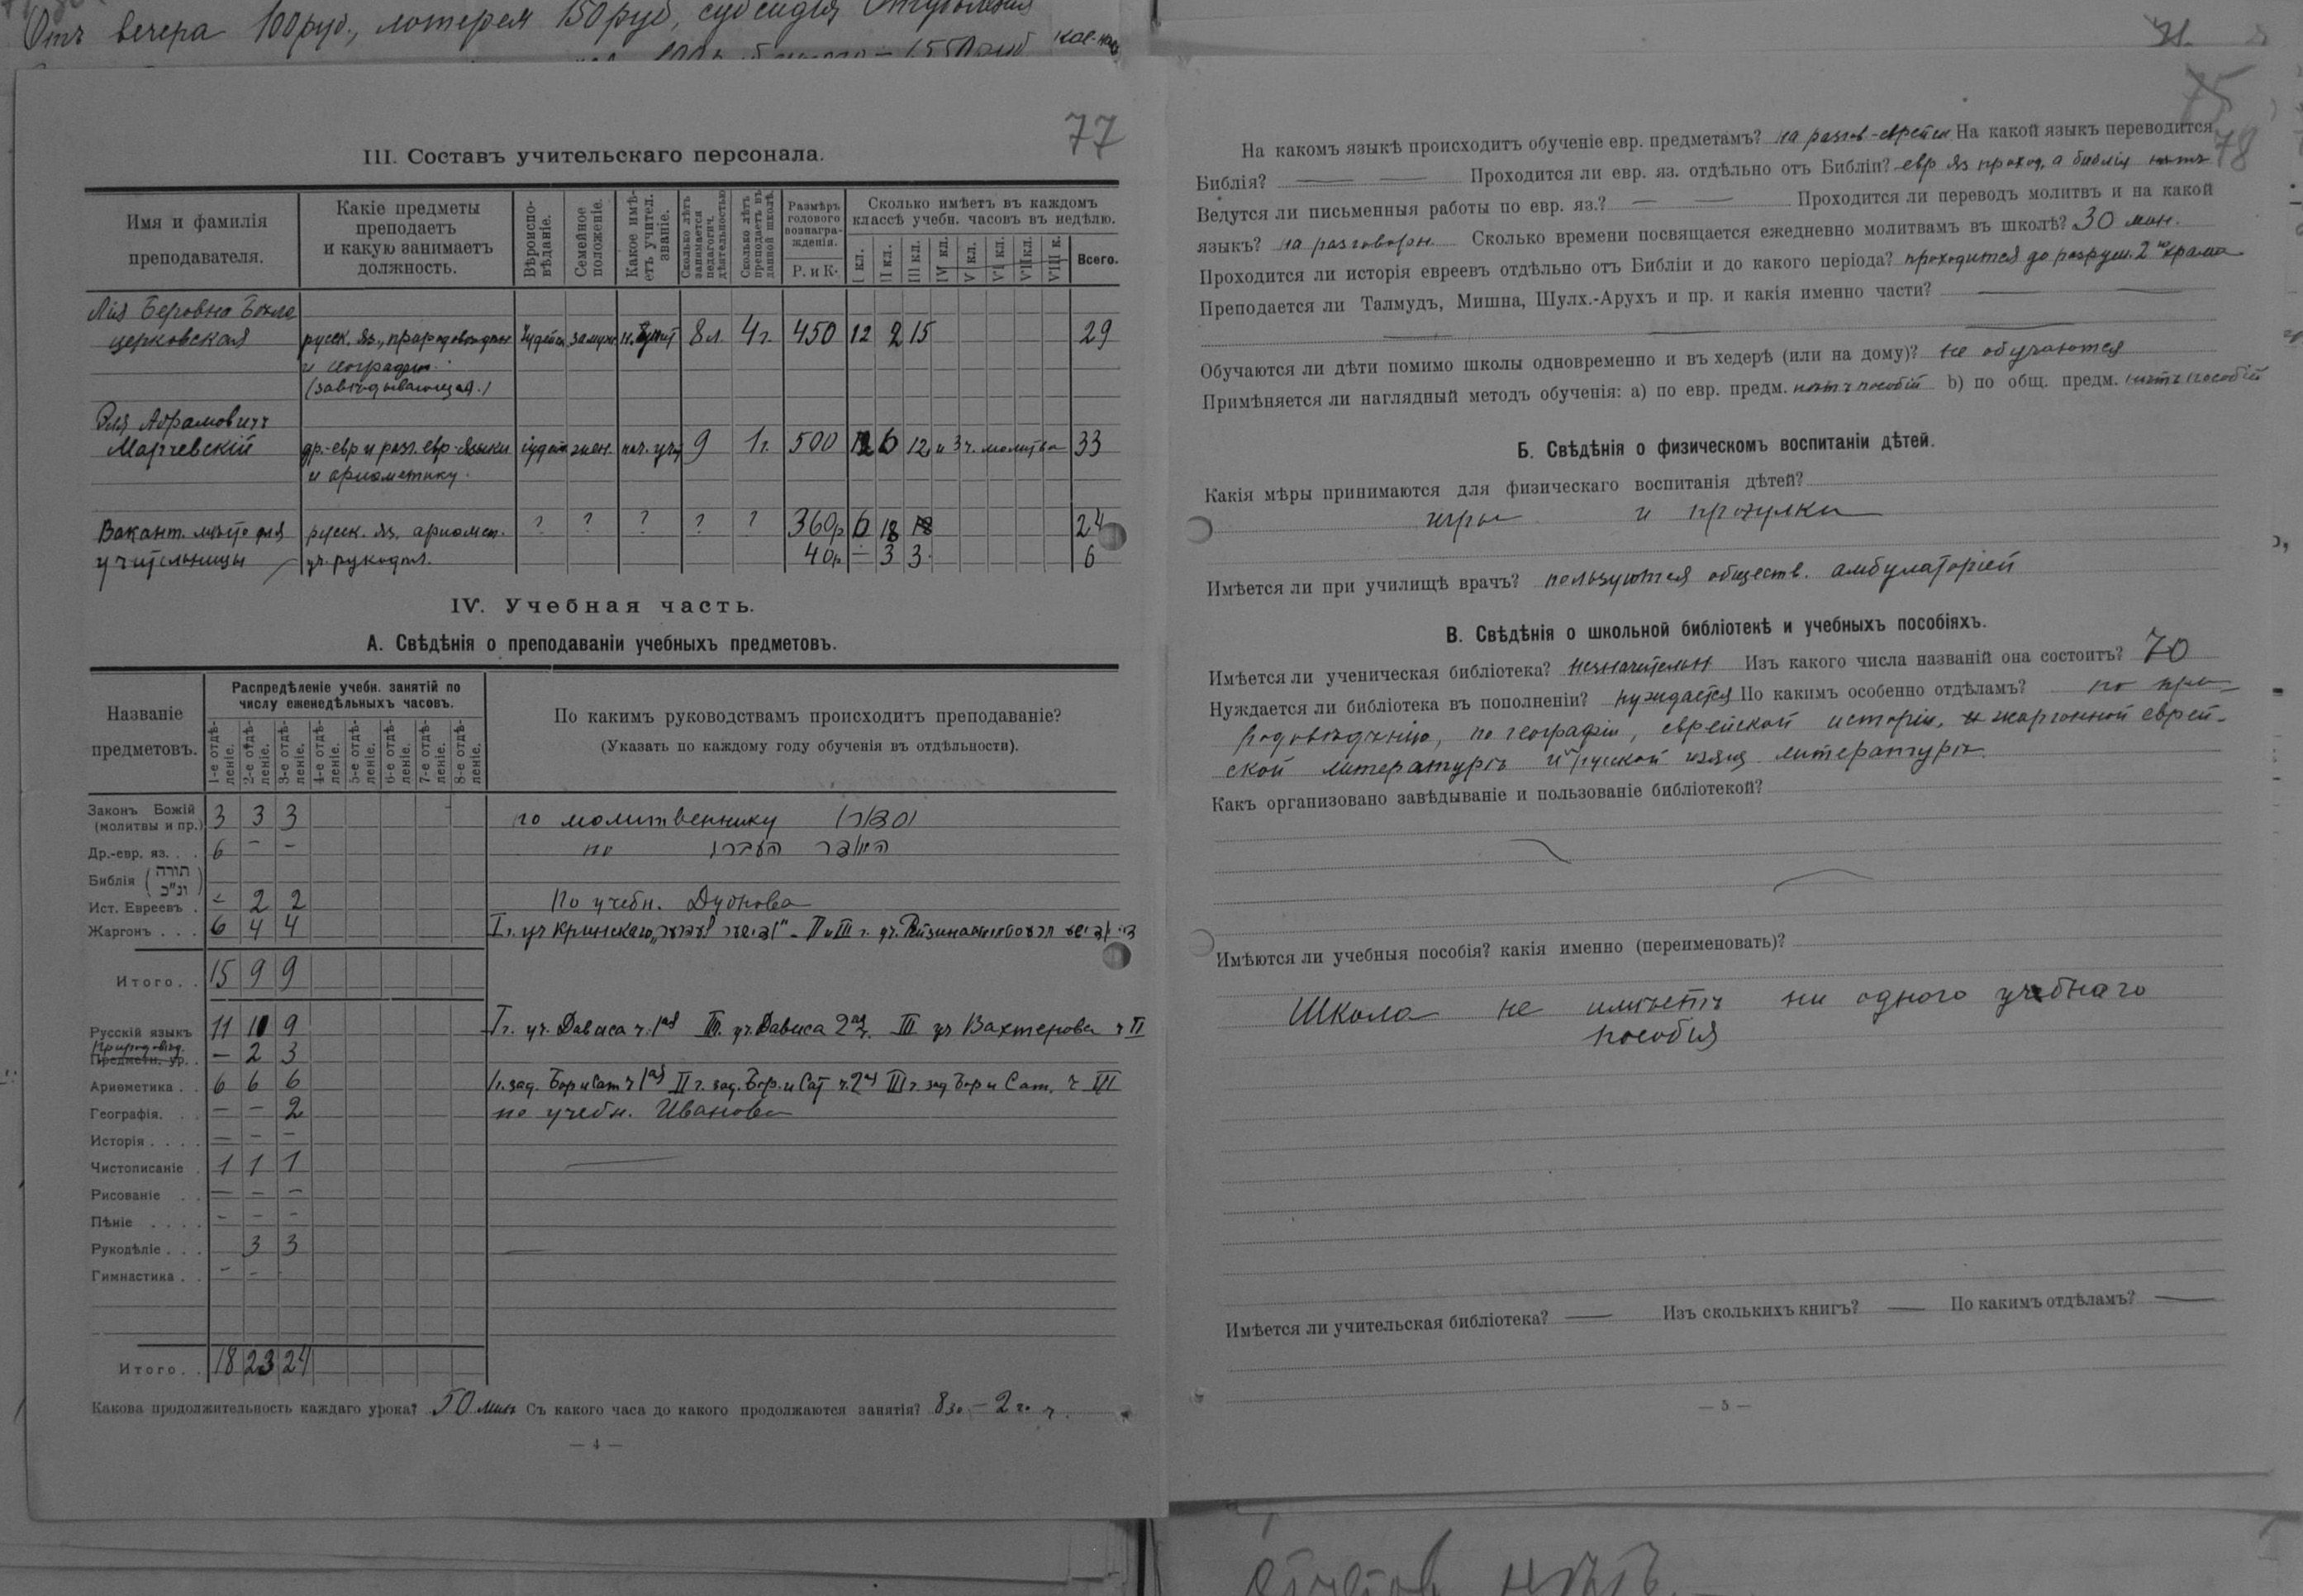 Отъ вечера 100 руб., лотерея 150 руб, субсидія
77
III. Составъ учительскаго персонала.
Имя и фамилія преподавателя.
Какіе предметы преподаетъ и какую занимаетъ должность.
Вѣроисповѣданіе.
Семейное положеніе.
Какое имѣетъ учител. званіе.
Сколько лѣтъ занимается педагогич. дѣятельностью
Сколько лѣтъ преподаетъ въ данной школѣ.
Размѣръ годового вознагражденія.
Р. и К.
Сколько имѣетъ въ каждомъ классѣ учебн. часовъ въ недѣлю.
I кл. II кл. III кл. IV кл. V кл. VI кл. VII кл. VIII к. Всего.
Лія Беровна
церковская русск. яз., природовѣдѣніе іудейск. замуж. 8 л. 4 г. 450 12 2 15 29
и географію.
(завѣдывающая.)
Эля Абрамовичъ
Марчевскій др.-евр и разг. евр. языки іудей женат. нач. уч. 9 1 г. 500 12 6 12 и 3 ч. молитва 33
и ариѳметику.
Вакант. мѣсто для русск. яз. ариѳмет. ? ? ? ? ? 360р 6 18 24
учительницы уч. рукодѣл. 40р — 3 3 6
IV. Учебная часть.
А. Свѣдѣнія о преподаваніи учебныхъ предметовъ.
Названіе предметовъ.
Распредѣленіе учебн. занятій по числу еженедѣльныхъ часовъ.
1-е отдѣленіе. 2-е отдѣленіе. 3-е отдѣленіе. 4-е отдѣленіе. 5-е отдѣленіе. 6-е отдѣленіе. 7-е отдѣленіе. 8-е отдѣленіе.
По какимъ руководствамъ происходитъ преподаваніе?
(Указать по каждому году обученія въ отдѣльности).
Законъ Божій (молитвы и пр.) 3 3 3 по молитвеннику
Др.-евр. яз. . . 6 — — по
Библія (תורה ונ"כ)
Ист. Евреевъ . — 2 2 По учебн. Дубнова
Жаргонъ . . . 6 4 4 I г. уч Кринскаго II и III г. уч.
Итого. . 15 9 9
Русскій языкъ 11 10 9 I г. уч. Дависа ч. 1ая II г. уч. Дависа 2ая ч. III уч Вахтерова ч II
Природовѣд.
Предметн. ур. . — 2 3
Ариѳметика . . 6 6 6 I г. зад. Бор и Сат ч 1ая II г. зад. Бор. и Сат ч. 2ая III г. зад Бор и Сат. ч III
Географія. . . — — 2 по учебн. Иванова
Исторія . . . . — — —
Чистописаніе . 1 1 1
Рисованіе . . — — —
Пѣніе . . . . - - -
Рукодѣліе . . . 3 3
Гимнастика . . - -
Итого. . 18 23 24
Какова продолжительность каждаго урока? 50 мин Съ какого часа до какого продолжаются занятія? 8 30 — 2 ч.
— 4 —
75
78
На какомъ языкѣ происходитъ обученіе евр. предметамъ? на разгов-еврейск На какой языкъ переводится
Библія? — — Проходится ли евр. яз. отдѣльно отъ Библіи? евр яз проход, а библія нѣтъ
Ведутся ли письменныя работы по евр. яз.? — — Проходится ли переводъ молитвъ и на какой
языкъ? на разговорн Сколько времени посвящается ежедневно молитвамъ въ школѣ? 30 мин.
Проходится ли исторія евреевъ отдѣльно отъ Библіи и до какого періода? проходится до разруш. 2го храма
Преподается ли Талмудъ, Мишна, Шулх.-Арухъ и пр. и какія именно части? — —
— — —
Обучаются ли дѣти помимо школы одновременно и въ хедерѣ (или на дому)? не обучаются
Примѣняется ли наглядный методъ обученія: а) по евр. предм. нѣтъ пособій b) по общ. предм. нѣтъ пособій
Б. Свѣдѣнія о физическомъ воспитаніи дѣтей.
Какія мѣры принимаются для физическаго воспитанія дѣтей?
игры и прогулки
Имѣется ли при училищѣ врачъ? пользуются обществ. амбулаторіей
В. Свѣдѣнія о школьной библіотекѣ и учебныхъ пособіяхъ.
Имѣется ли ученическая библіотека? незначительн Изъ какого числа названій она состоитъ? 70
Нуждается ли библіотека въ пополненіи? нуждается По какимъ особенно отдѣламъ? по при-
родовѣдѣнію, по географіи, еврейской исторіи, и жаргонной еврей-
ской литературѣ и русской изящ литературѣ.
Какъ организовано завѣдываніе и пользованіе библіотекой?
Имѣются ли учебныя пособія? какія именно (переименовать)?
Школа не имѣетъ ни одного учебнаго
пособія
Имѣется ли учительская библіотека? — Изъ сколькихъ книгъ? — По какимъ отдѣламъ? —
— 5 —
нѣтъ.